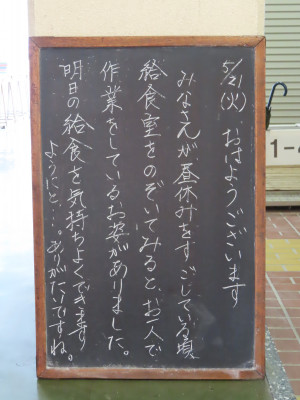 5/21(火) おはようございます
みなさんが昼休みをすごしている頃
給食室をのぞいてみると、お一人で
作業をしているお姿がありました。
明日の給食を気持ちよくできます
ようにと…。ありがたいですね。
1-